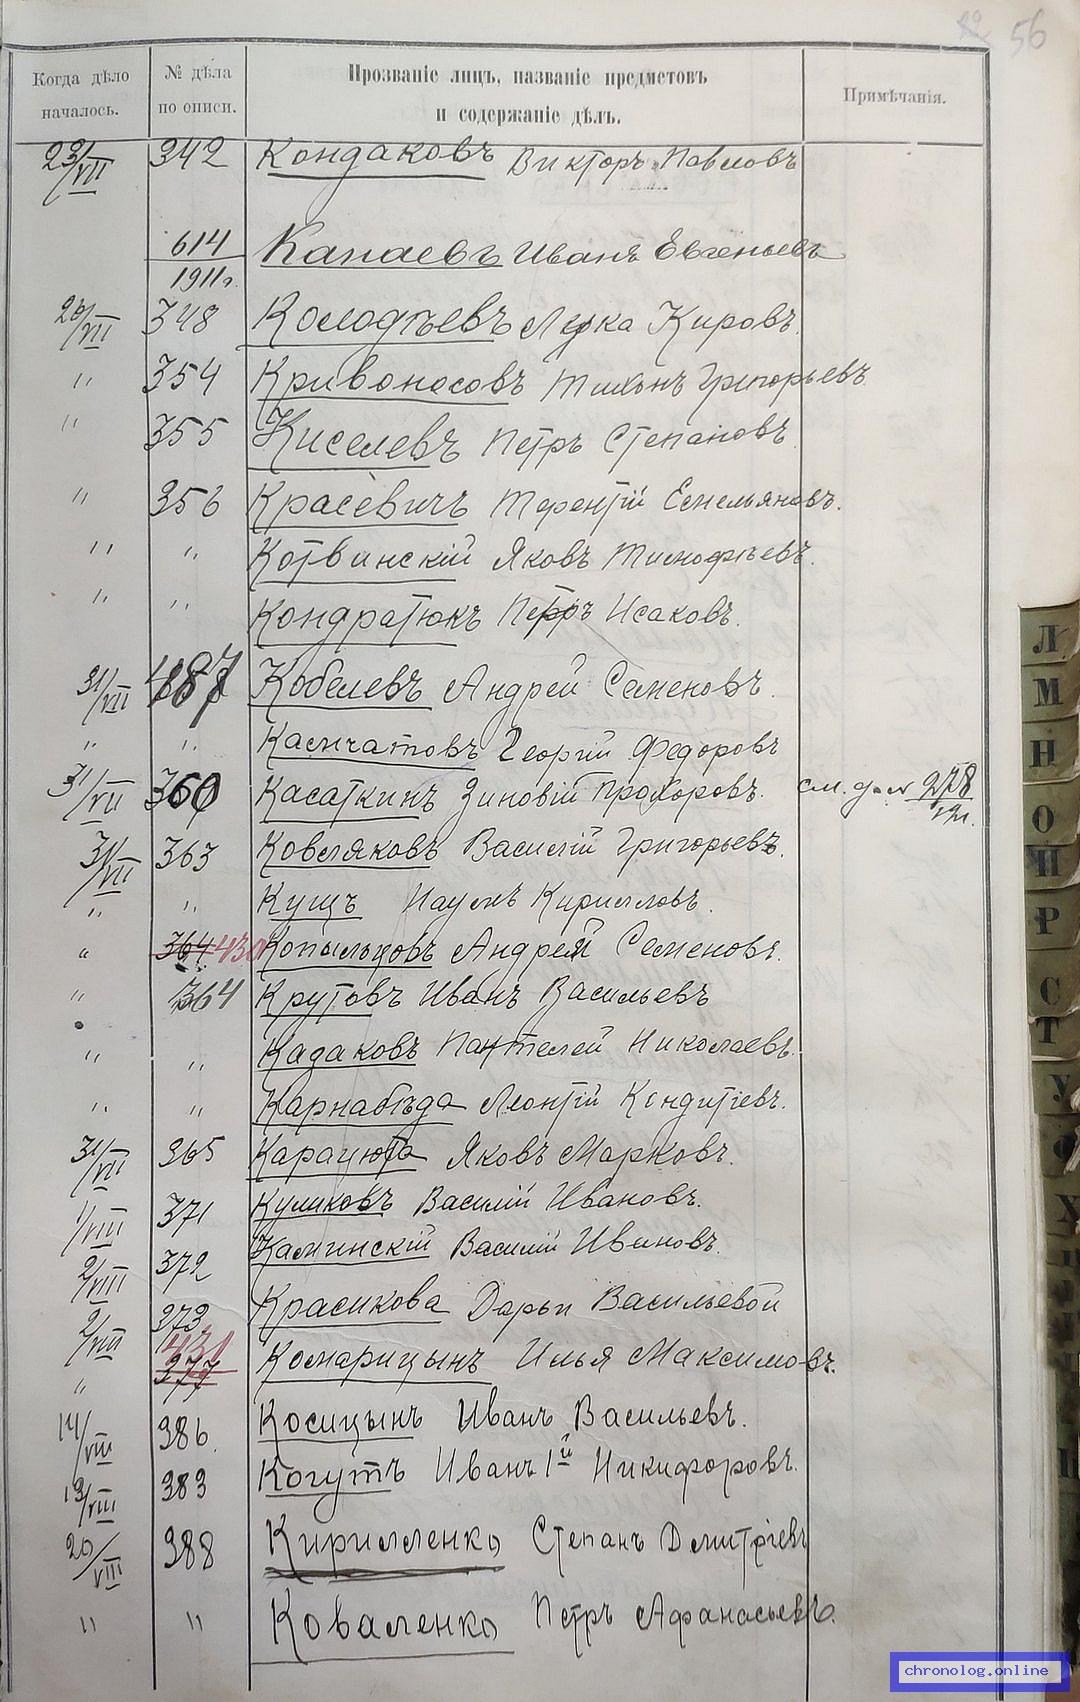 56
Когда дѣло началось.
№ дѣла по описи.
Прозваніе лицъ, названіе предметовъ
и содержаніе дѣлъ.
Примѣчанія.
23/VII 342 Кондаковъ Викторъ Павловъ
614/1911г. Капаевъ Иванъ Евгеньевъ
26/VII 348 Колодѣевъ Лука Кировъ.
" 354 Кривоносовъ Тихонъ Григорьевъ
" 355 Киселевъ Петръ Степановъ.
" 356 Красевичъ Терентій Емельяновъ.
" " Котвинскій Яковъ Тимофѣевъ.
" " Кондратюкъ Петръ Исаковъ.
31/VII 487 Кобелевъ Андрей Семеновъ.
" " Камчатовъ Георгій Федоровъ
31/VII 360 Касаткинъ Зиновій Прохоровъ. см. д. № 278/12г.
31/VII 363 Ковляковъ Василій Григорьевъ.
" " Кущъ Наумъ Кирилловъ.
" 364 430 Копыльцовъ Андрей Семеновъ.
" 364 Крутовъ Иванъ Васильевъ
" " Кадаковъ Пантелей Николаевъ.
" " Карнабѣда Леонтій Кондитіевъ.
31/VII 365 Карацюта Яковъ Марковъ.
1/VIII 371 Куликовъ Василій Ивановъ.
2/VIII 372 Каминскій Василій Ивановъ.
2/VIII 373 Красикова Дарьи Васильевой
" 431 377 Комарицынъ Илья Максимовъ.
14/VIII 386. Косицынъ Иванъ Васильевъ.
13/VIII 383 Когутъ Иванъ 1й Никифоровъ.
20/VIII 388 Кирилленко Степанъ Дмитріевъ
" " Коваленко Петръ Афанасьевъ.
Л
М
Н
О
П
Р
С
Т
У
Ф
Х
chronolog.online